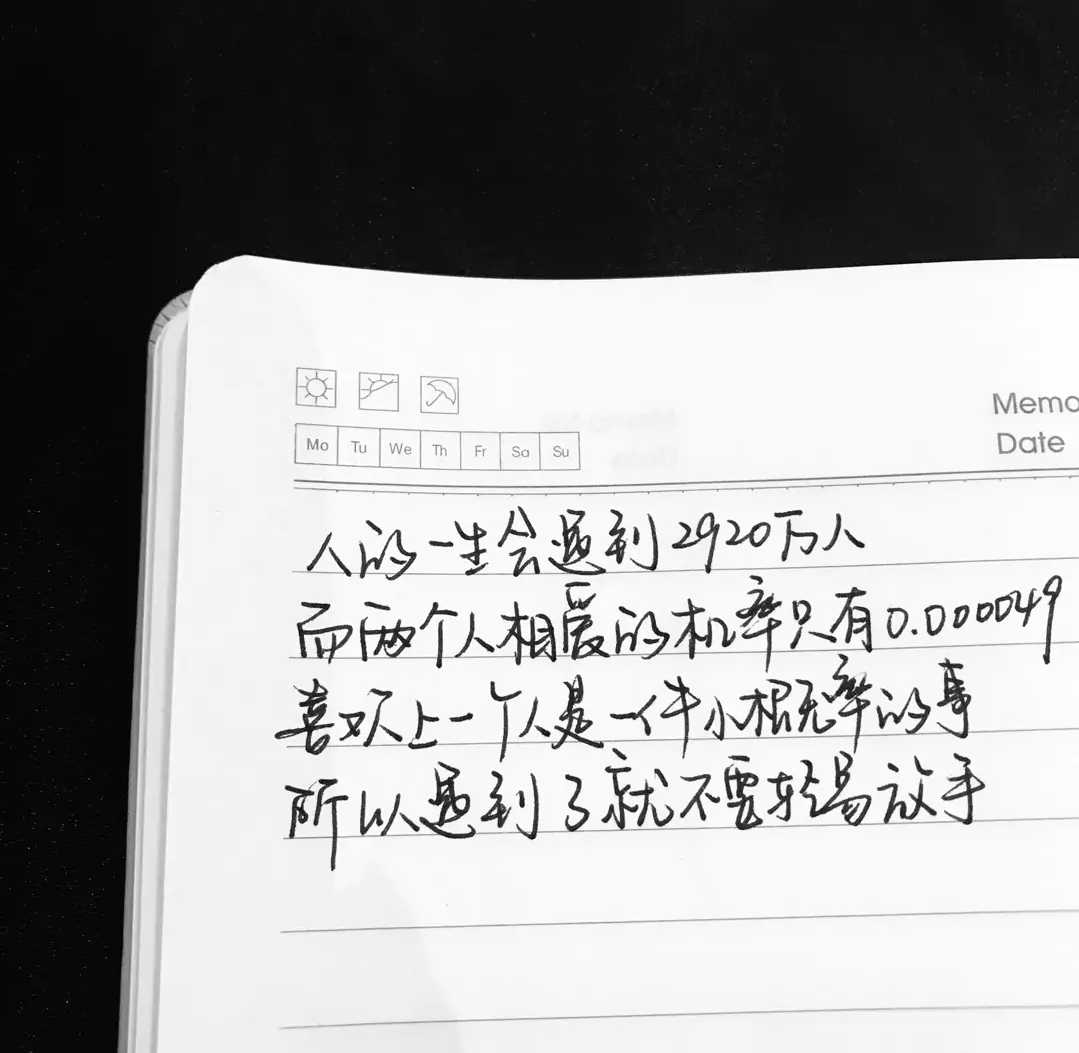 Memo
Date
Mo Tu We Th Fr Sa Su
人的一生会遇到2920万人
而两个人相爱的机率只有0.000049
喜欢上一个人是一件小概率的事
所以遇到了就不要轻易放手